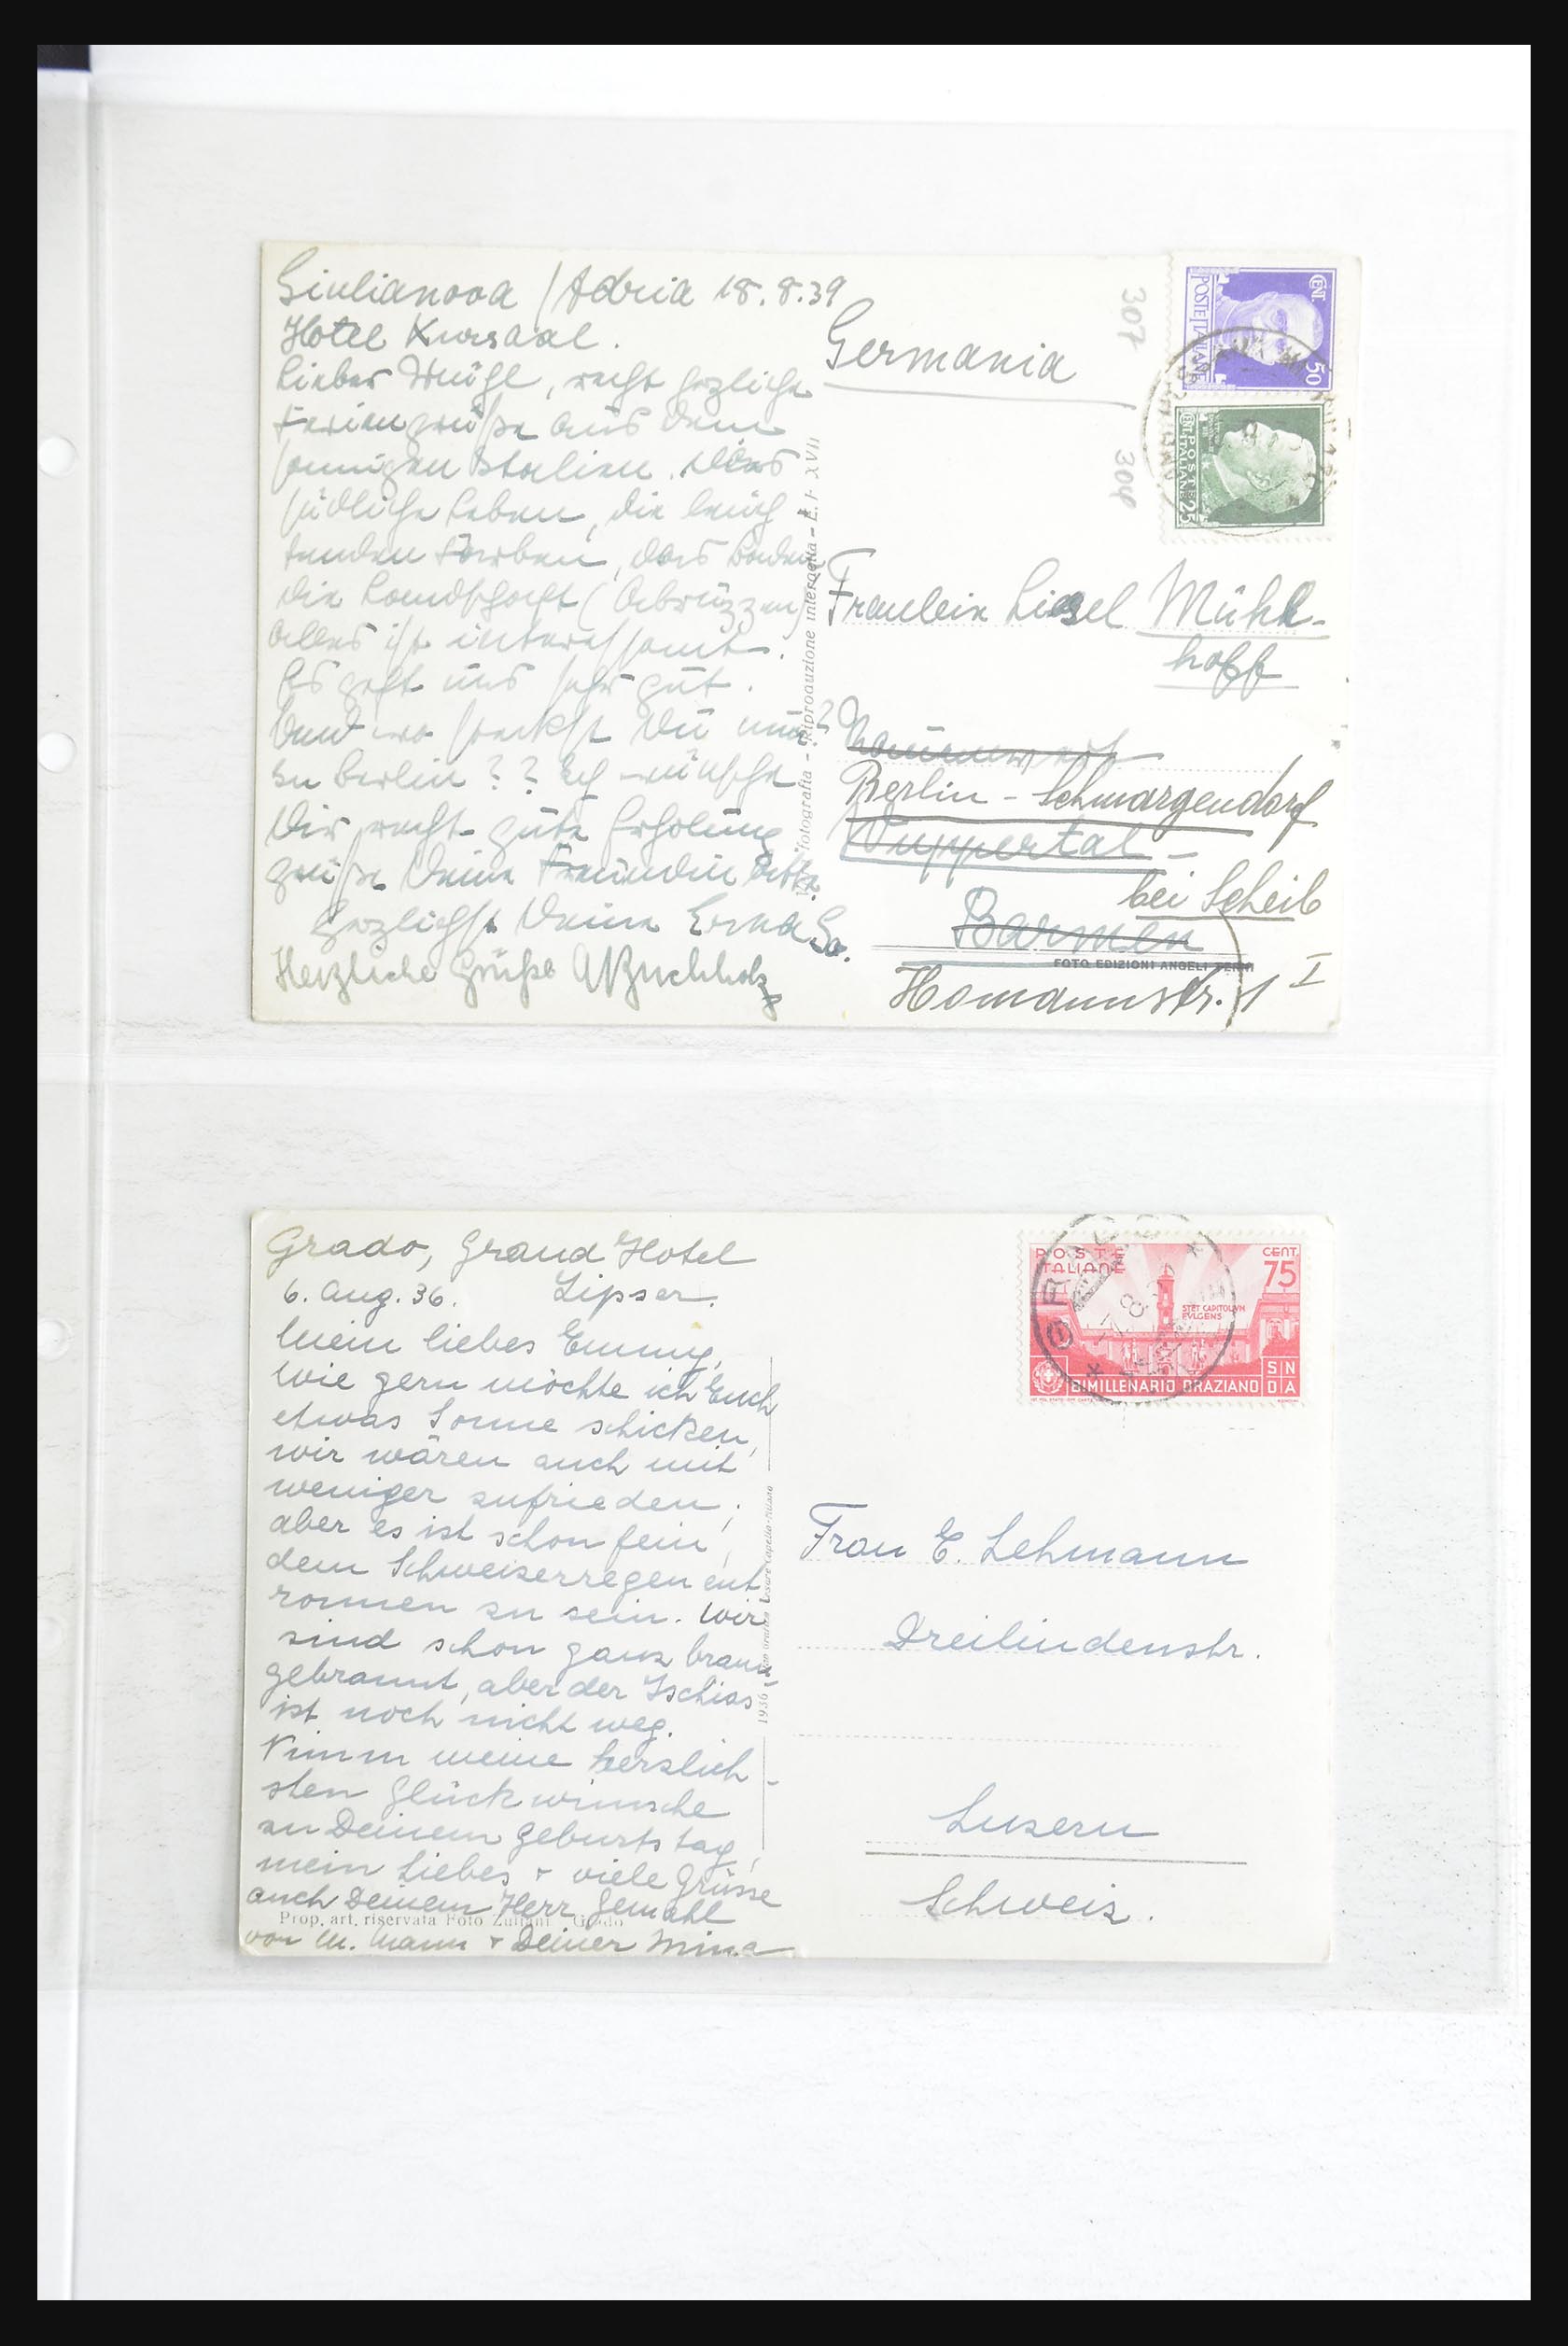 Giulianova / Adria 18.8.39
Hotel Kursaal.
Lieber Mühl, recht herzliche
Feriengrüße aus dem
sonnigen Italien. Das
südliche Leben, die leuch
tenden Farben, das Baden
die Landschaft (Abruzzen)
alles ist interessant.
Es geht uns sehr gut.
Und wo steckst Du nun?
In Berlin ?? Ich wünsche
Dir recht gute Erholung
grüße Deine Freundin
herzlichst Deine Erna So.
Herzliche Grüße A Buchholz
Germania
307
304
CENT. 50
POSTE ITALIANE
POSTE ITALIANE
CENT 25
fotografia - Riproduzione interdetta - E. F. XVII
Fräulein Liesel Mühl-
hoff
Berlin - Schmargendorf
Wuppertal -
bei Scheib
Barmen
FOTO EDIZIONI ANGELI TERNI
Homannstr. 1 I
Grado, Grand Hotel
6. Aug. 36. Lipser.
Mein liebes Emmy,
Wie gern möchte ich Euch
etwas Sonne schicken,
wir wären auch mit
weniger zufrieden;
aber es ist schon fein,
dem Schweizerregen ent
ronnen zu sein. Wir
sind schon ganz braun
gebrannt, aber der Ischias
ist noch nicht weg.
Nimm meine herzlich-
sten Glückwünsche
zu Deinem Geburtstag,
mein Liebes + viele Grüsse
auch Deinem Herr Gemahl
von M. Mann + Deiner Mina
Prop. art. riservata Foto Zuliani Grado
1936 Cesare Capello-Milano
POSTE
ITALIANE
CENT.
75
STET CAPITOLIVM
FVLGENS
BIMILLENARIO ORAZIANO
S N
D A
Frau E. Lehmann
Dreilindenstr.
Luzern
Schweiz.